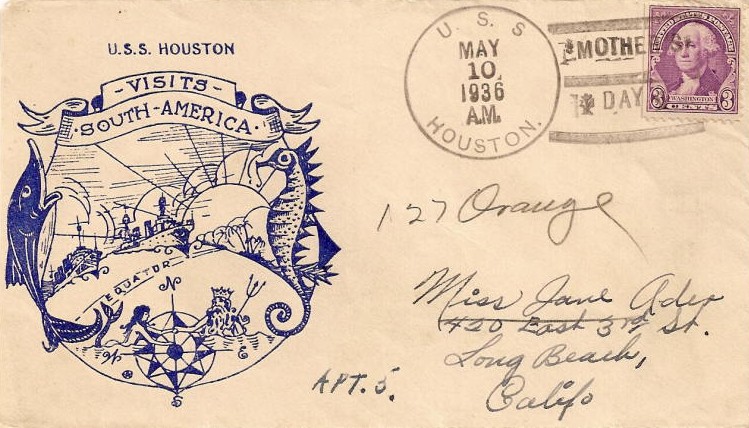 U.S.S. HOUSTON
VISITS
SOUTH-AMERICA
EQUATOR
N
W
E
S
U. S. S
MAY
10
1936
A.M.
HOUSTON.
MOTHE S
DAY
UNITED STATES POSTAGE
3 WASHINGTON 3
CENTS
127 Orange
Miss Jane Ader
420 East 3rd St.
Long Beach,
Califo
APT. 5.